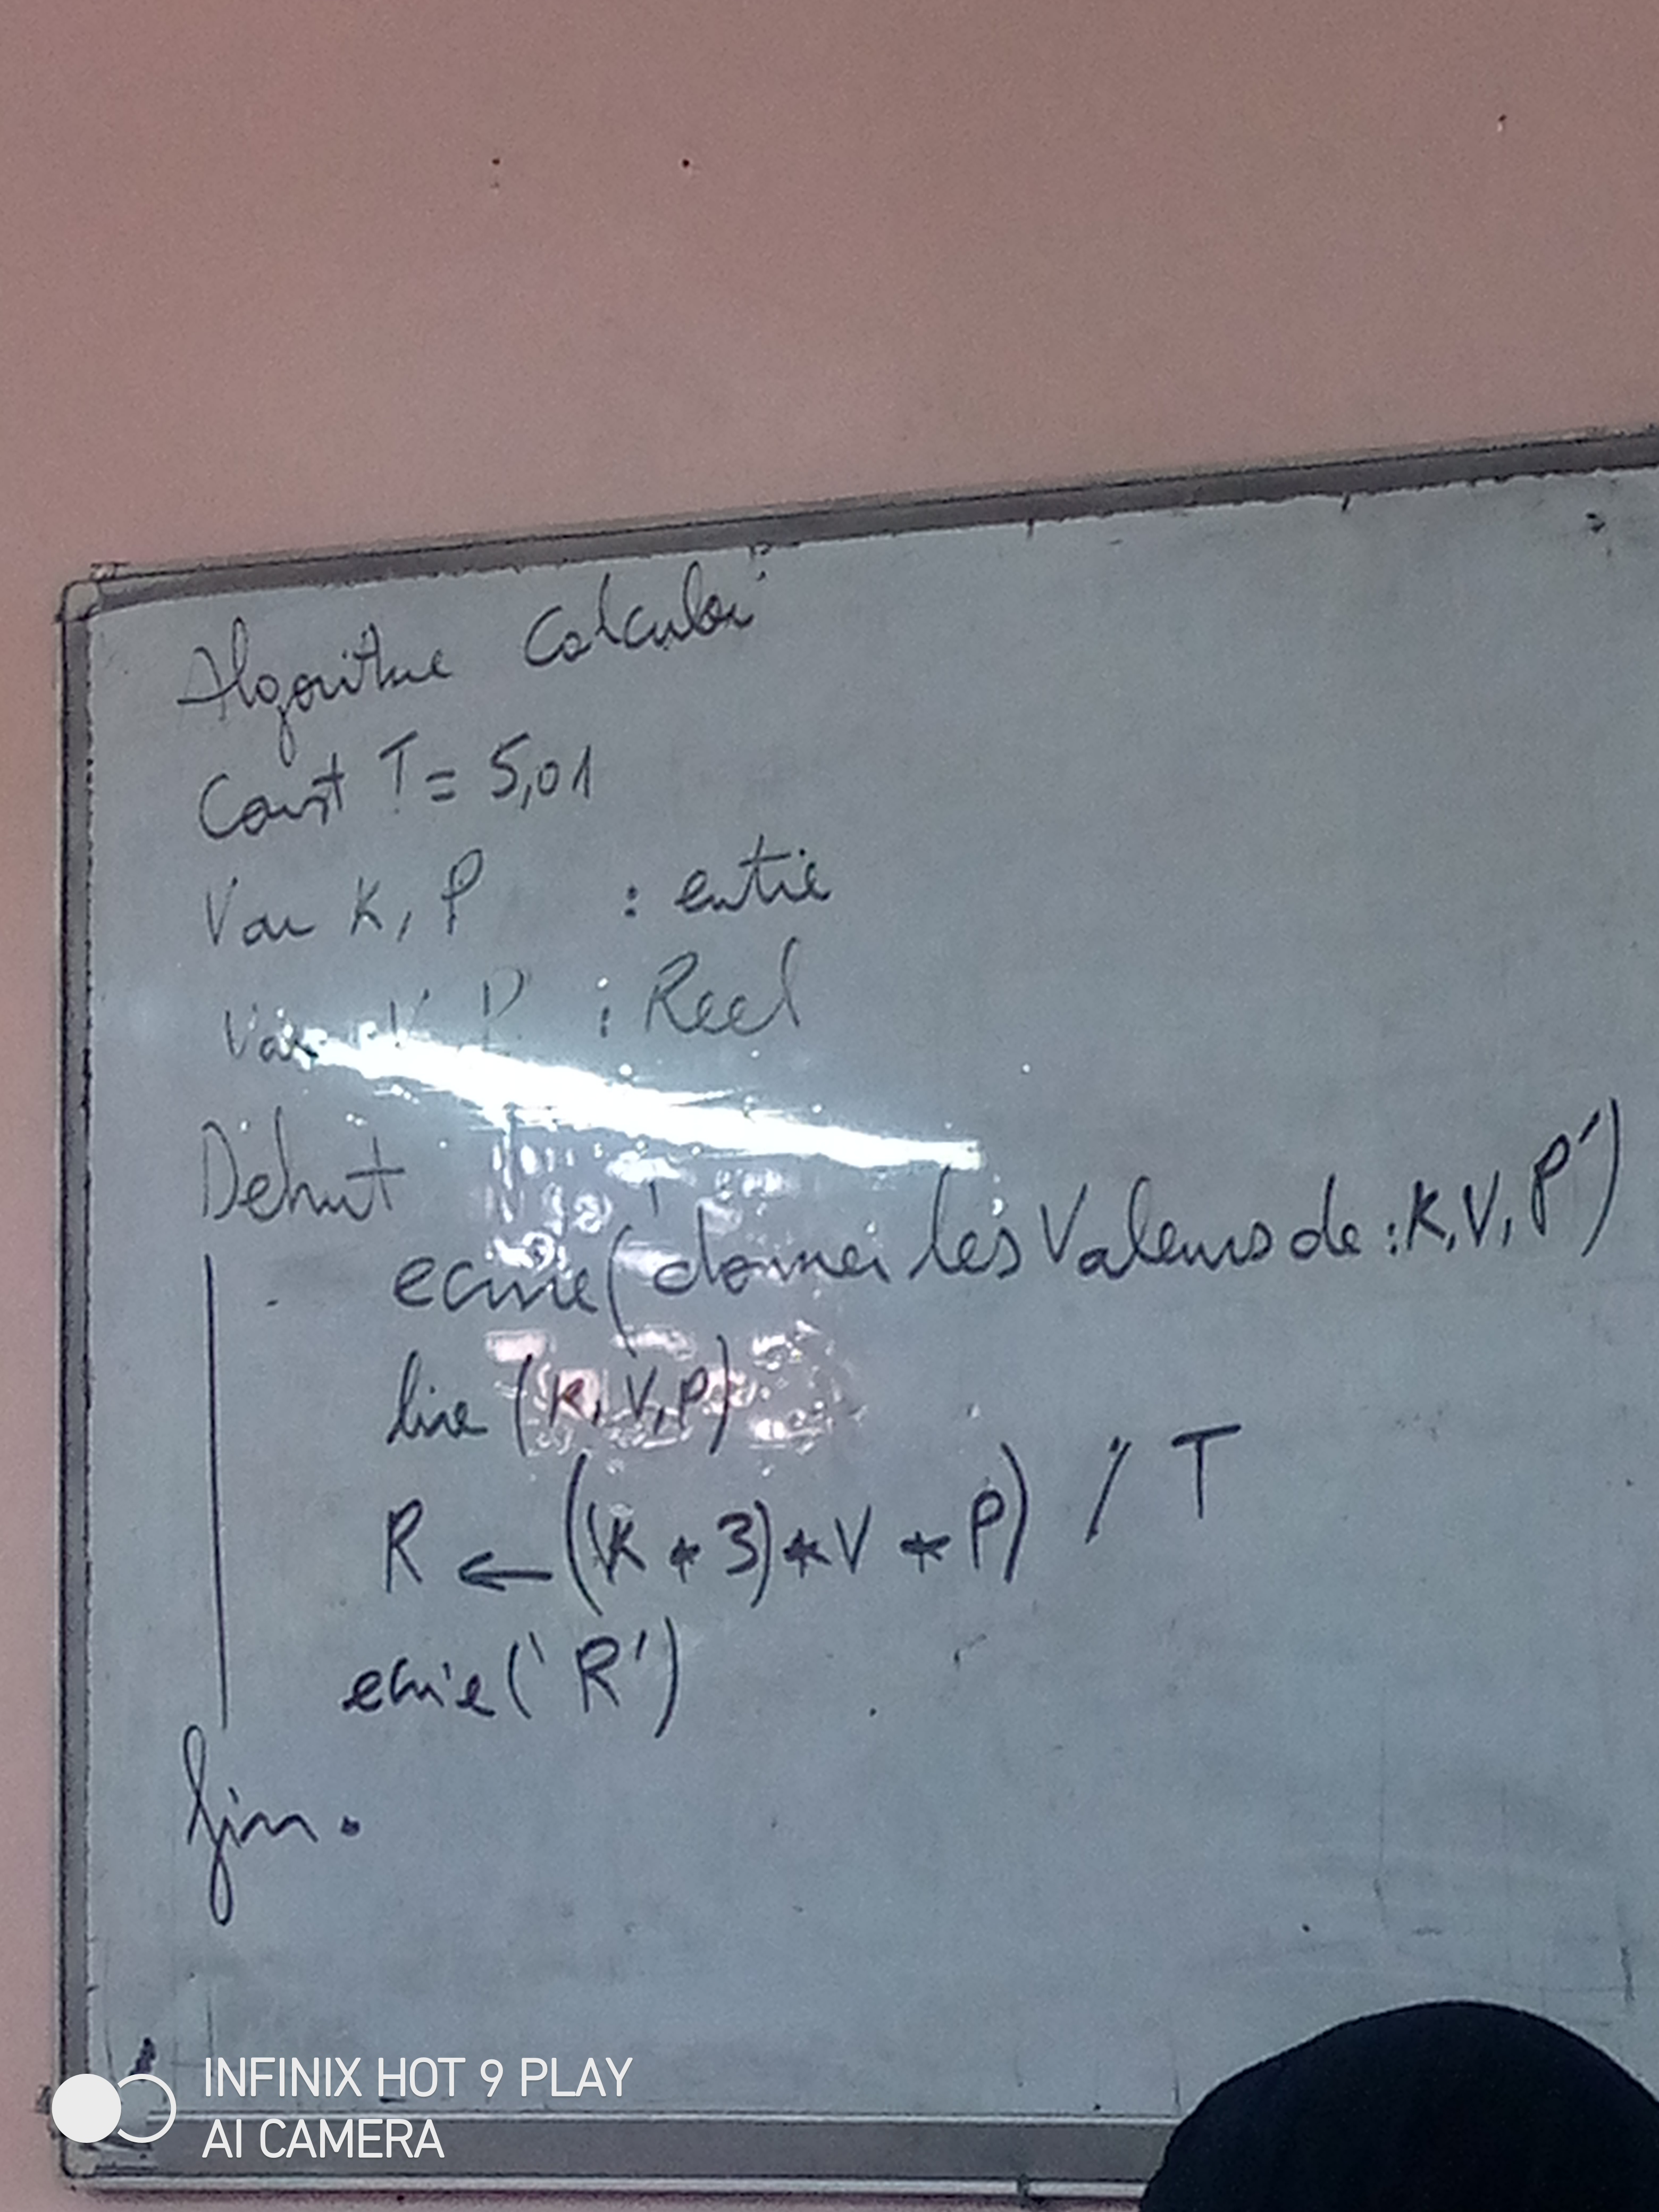 Algorithme Calculer
Const T = 5,01
Var K, P : entier
Var V, R : Reel
Debut
ecrire('donner les Valeurs de : K, V, P')
lire (K, V, P)
R ← ((K * 3) * V * P) / T
ecrire('R')
fin.
INFINIX HOT 9 PLAY
AI CAMERA